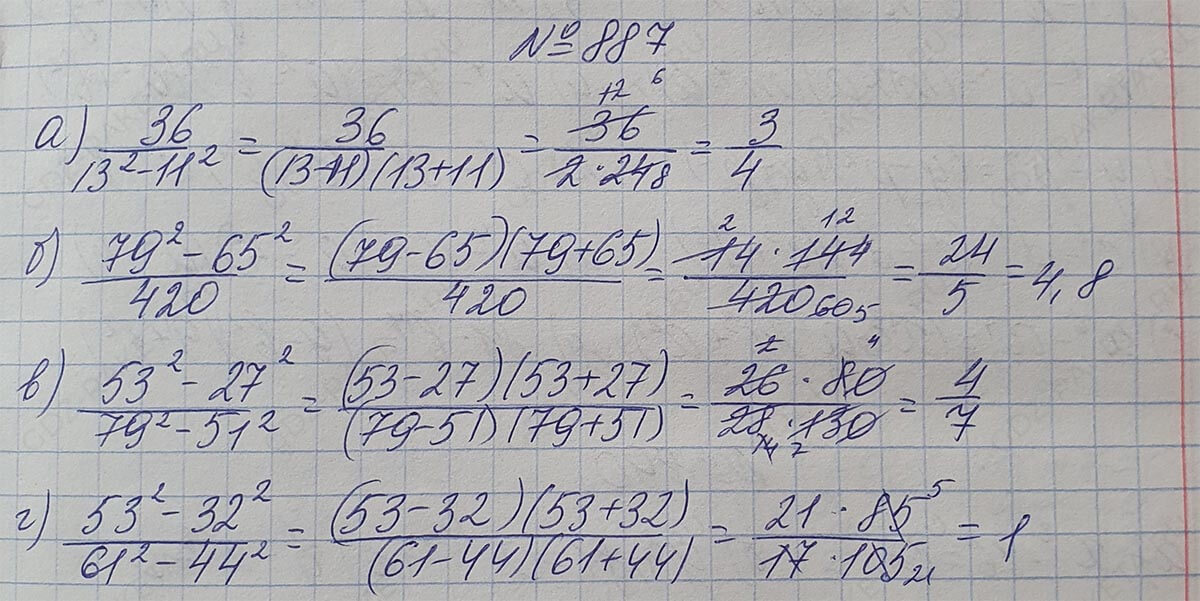 № 887
а) 36/(13² - 11²) = 36/((13-11)(13+11)) = 36/(2·24) = 3/4
б) (79² - 65²)/420 = ((79-65)(79+65))/420 = (14·144)/420 = 24/5 = 4,8
в) (53² - 27²)/(79² - 51²) = ((53-27)(53+27))/((79-51)(79+51)) = (26·80)/(28·130) = 4/7
г) (53² - 32²)/(61² - 44²) = ((53-32)(53+32))/((61-44)(61+44)) = (21·85)/(17·105) = 1